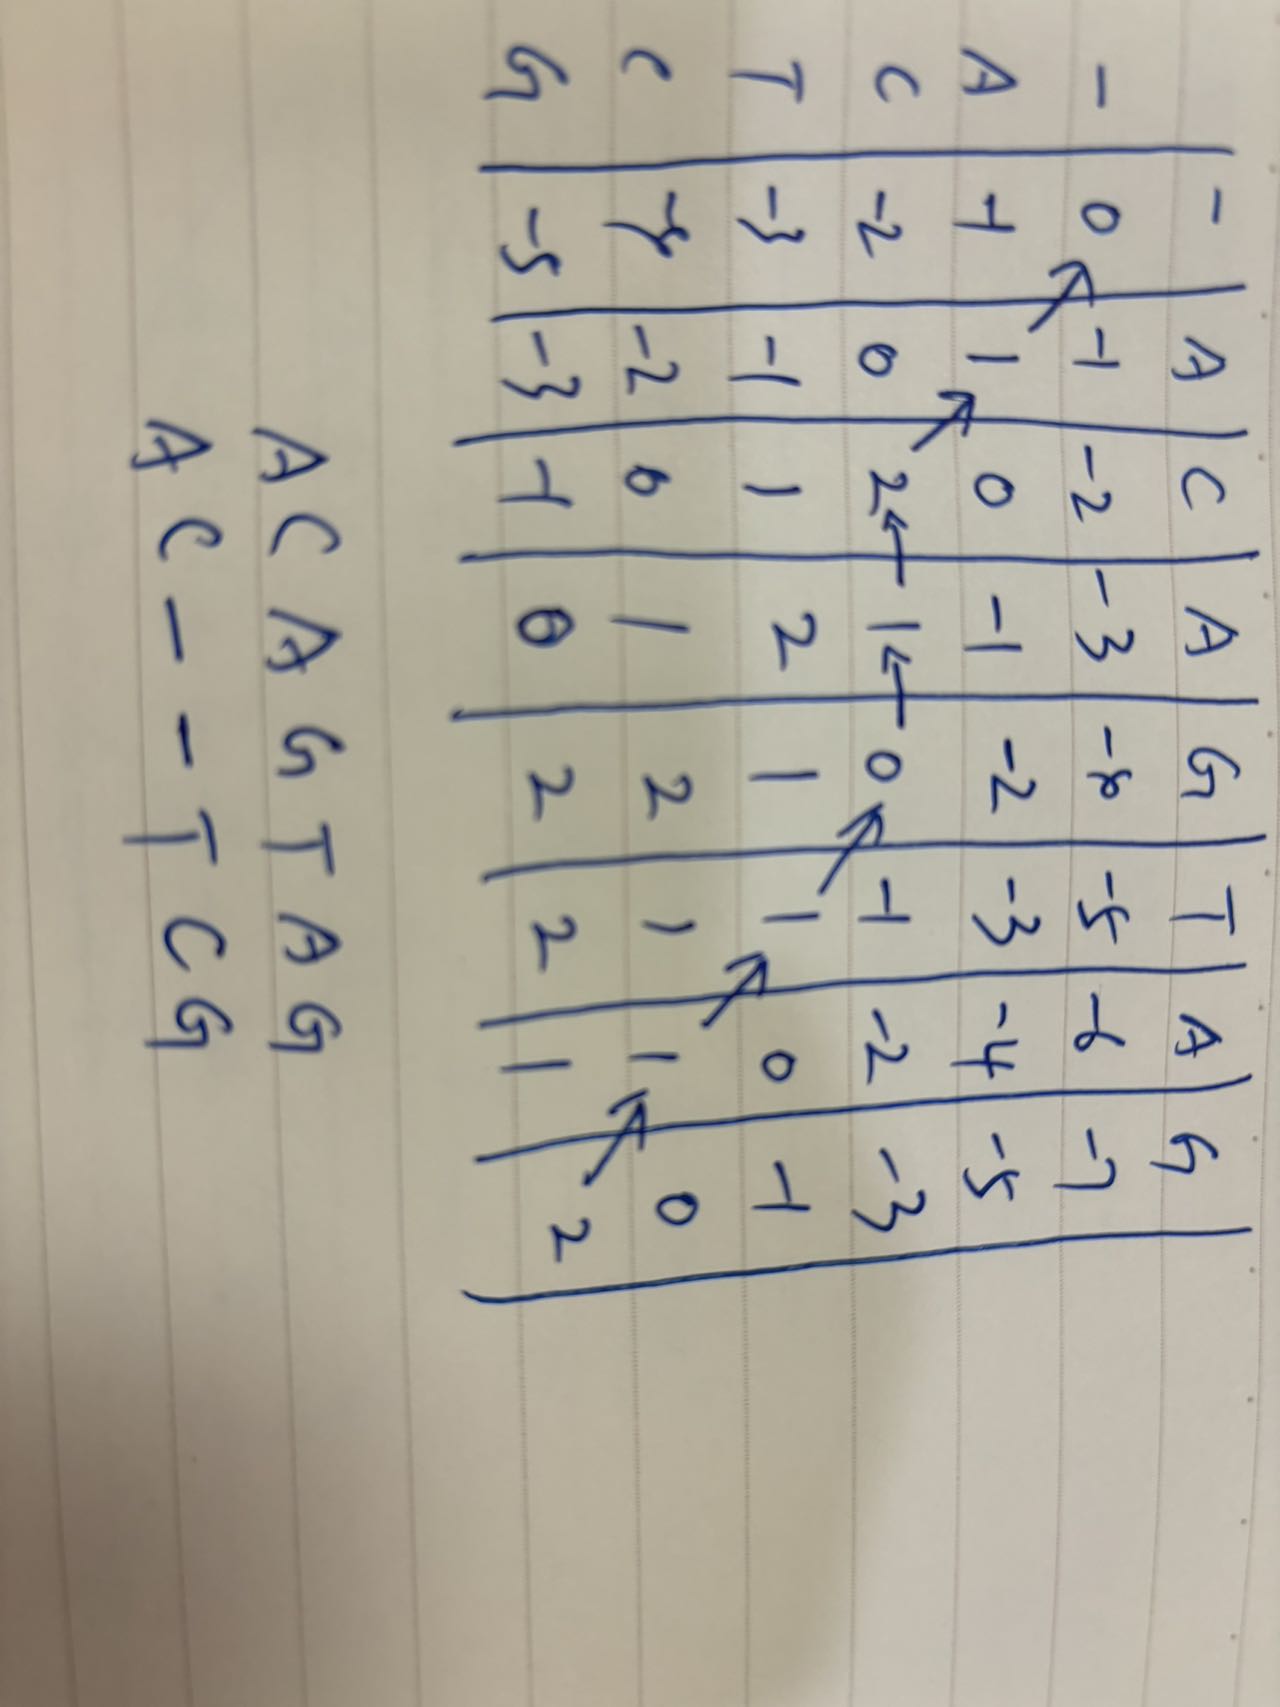 - A C A G T A G
- 0 -1 -2 -3 -4 -5 -6 -7
A -1 1 0 -1 -2 -3 -4 -5
C -2 0 2 ← 1 ← 0 -1 -2 -3
T -3 -1 1 2 1 1 0 -1
C -4 -2 0 1 2 1 1 0
G -5 -3 -1 0 2 2 1 2
A C A G T A G
A C - - T C G